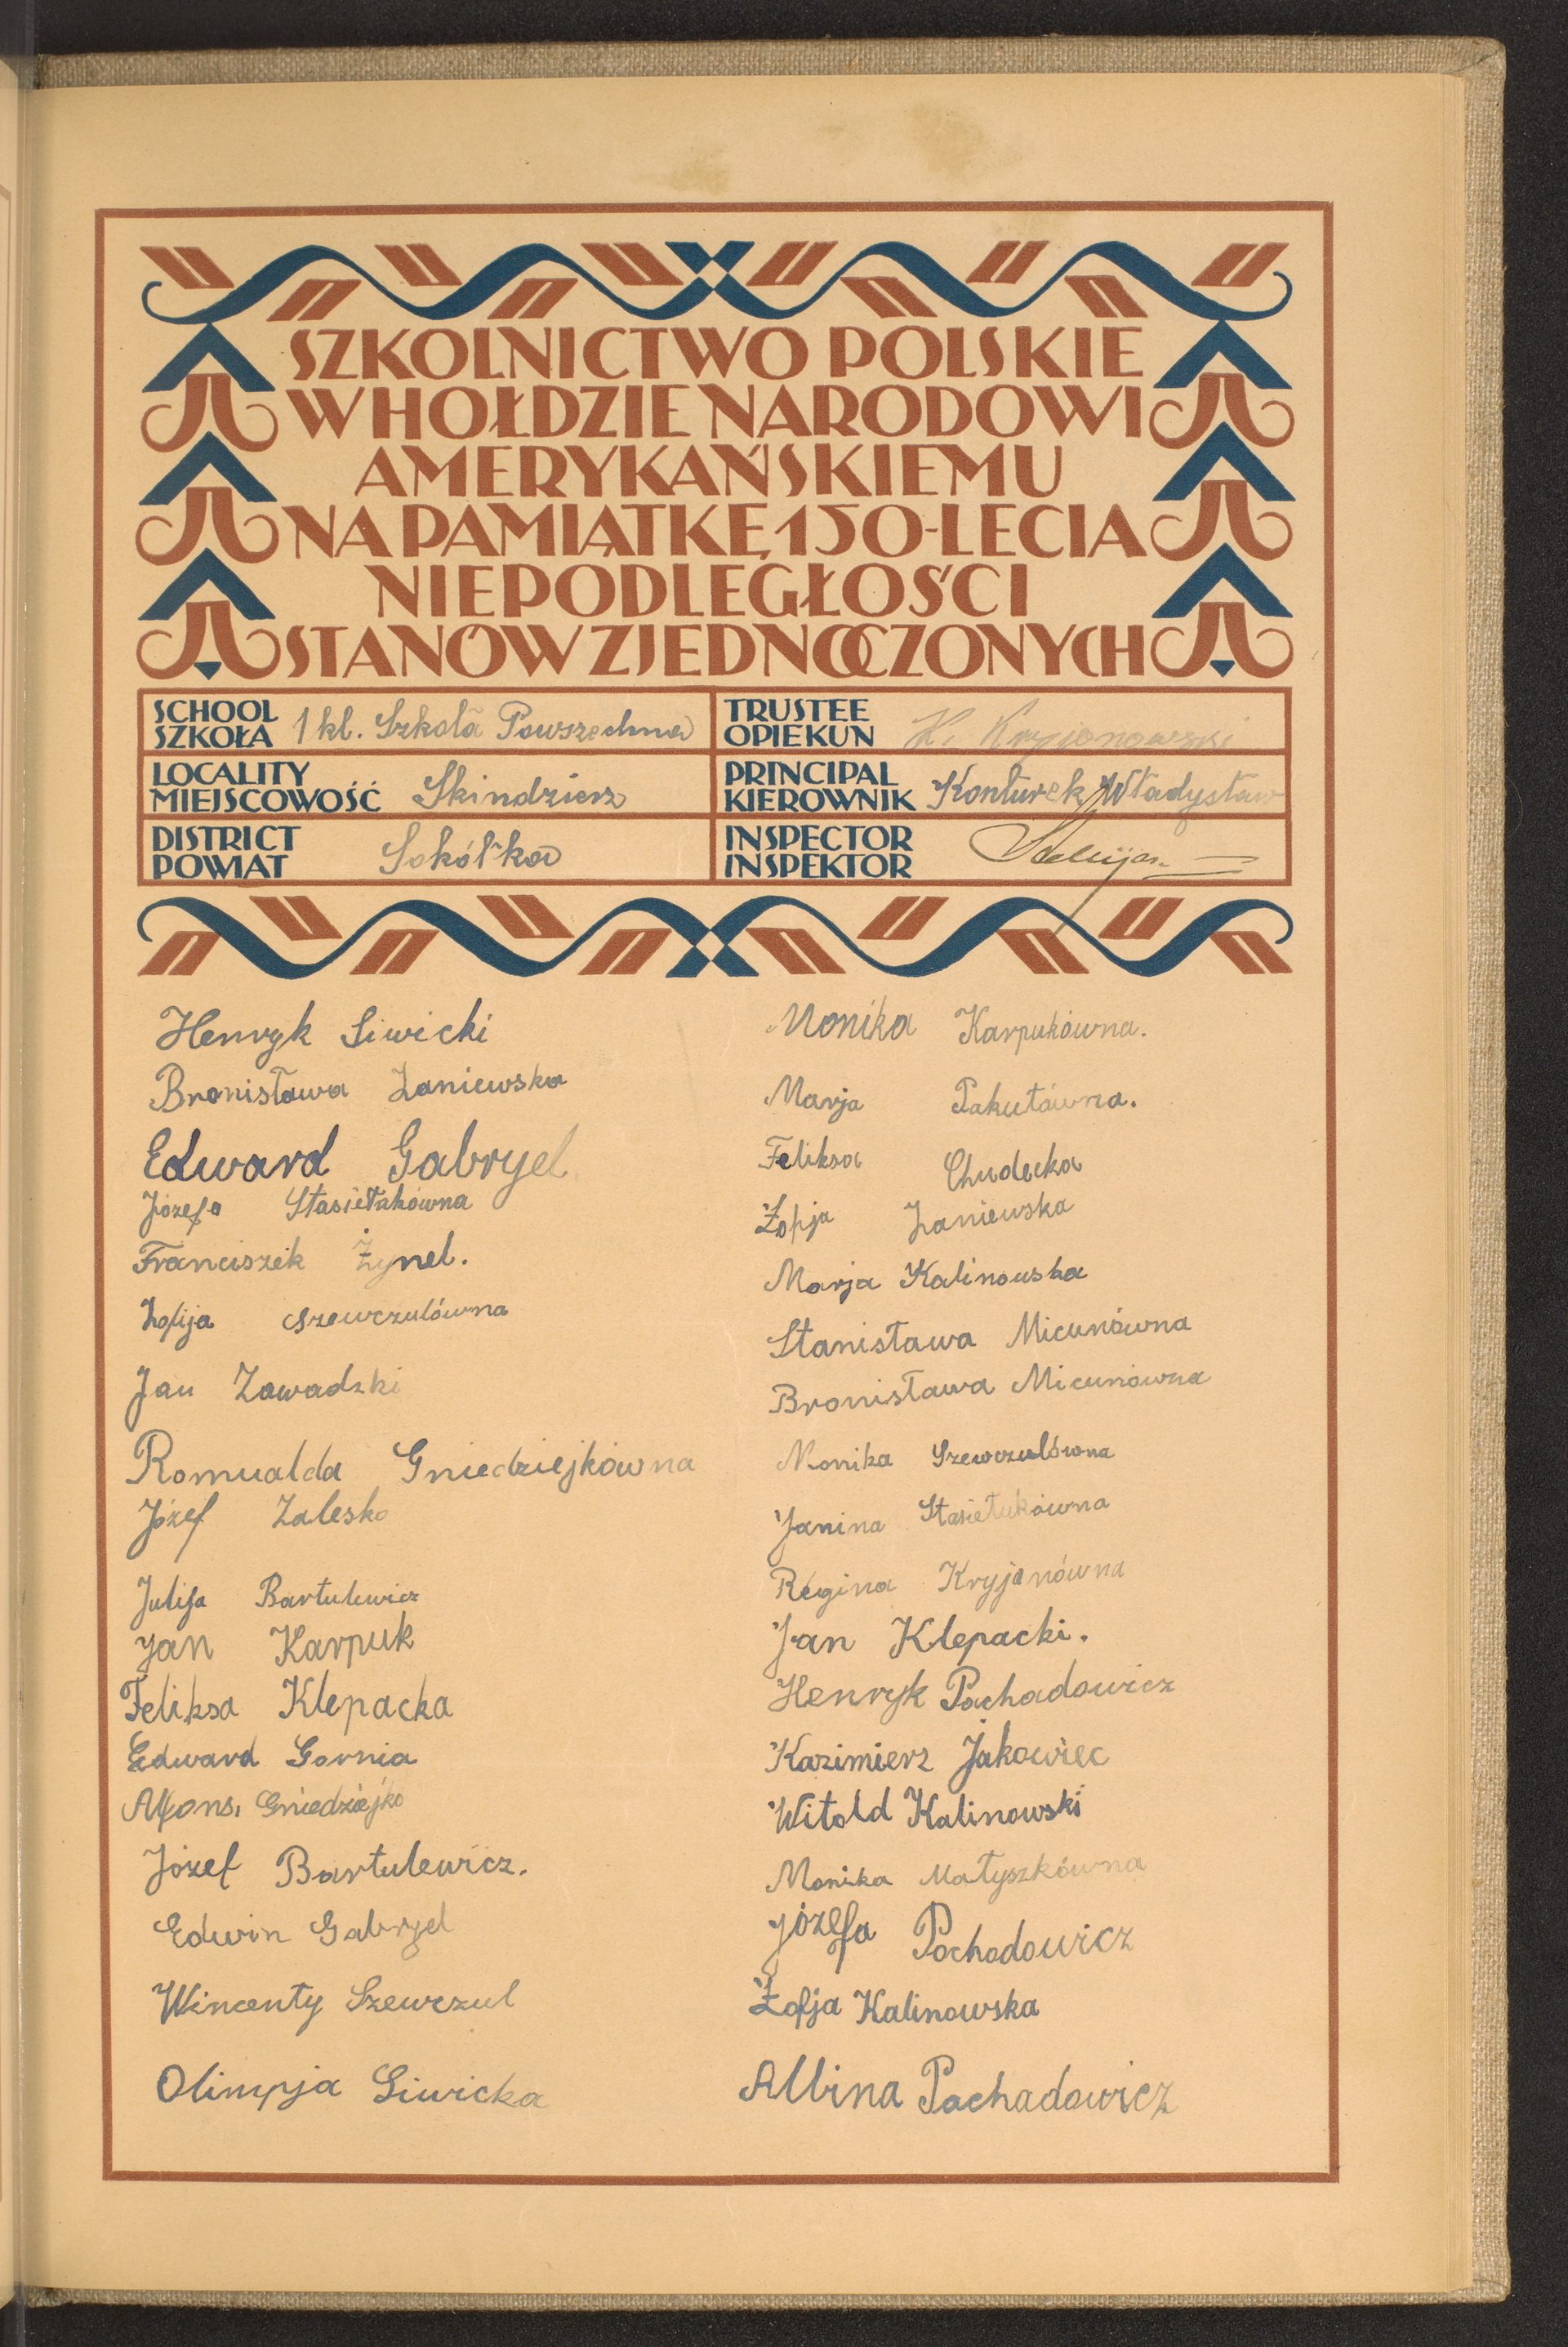 SZKOLNICTWO POLSKIE
W HOŁDZIE NARODOWI
AMERYKAŃSKIEMU
NA PAMIĄTKĘ 150-LECIA
NIEPODLEGŁOŚCI
STANÓW ZJEDNOCZONYCH
SCHOOL
SZKOŁA 1 kl. Szkoła Powszechna
TRUSTEE
OPIEKUN K. Kryjonowski
LOCALITY
MIEJSCOWOŚĆ Skindzierz
PRINCIPAL
KIEROWNIK Konturek Władysław
DISTRICT
POWIAT Sokółka
INSPECTOR
INSPEKTOR
Henryk Siwicki
Bronisława Zaniewska
Edward Gabryel
Józefa Stasiełukówna
Franciszek Żynel.
Zofija Szewczulówna
Jan Zawadzki
Romualda Gniedziejkówna
Józef Zalesko
Julija Bartulewicz
Jan Karpuk
Feliksa Klepacka
Edward Gornia
Alfons, Gniedziejko
Józef Bartulewicz.
Edwin Gabryel
Wincenty Szewczul
Olimpja Siwicka
Monika Karpukówna.
Marja Pakutówna.
Feliksa Chudecka
Zofja Zaniewska
Marja Kalinowska
Stanisława Micunówna
Bronisława Micunówna
Monika Szewczulówna
Janina Stasiełukówna
Regina Kryjanówna
Jan Klepacki.
Henryk Pachadowicz
Kazimierz Jakowiec
Witold Kalinowski
Monika Matyszkówna
Józefa Pochodowicz
Zofja Kalinowska
Albina Pachadowicz